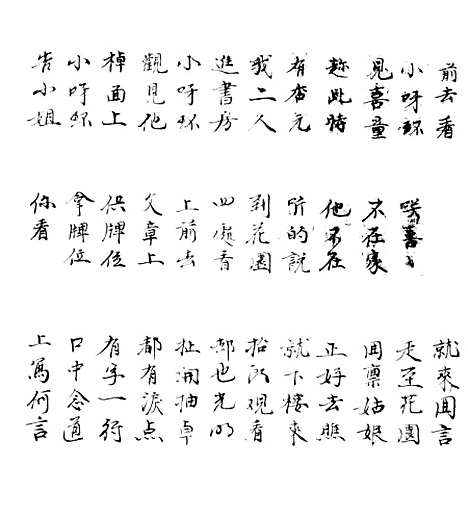 前去看 就來回言
小呀环 咲喜喜 走至花園
見喜童 不在家 回禀姑娘
趂此時 他不在 正好去瞧
有杏元 所的說 就下樓來
我二人 到花園 抬头观看
進書房 四處看 都也光明
小吁环 上前去 扯開抽卓
觀見他 文章上 都有淚点
棹面上 供牌位 有字一行
小吁环 拿牌位 口中念道
告小姐 你看 上寫何言